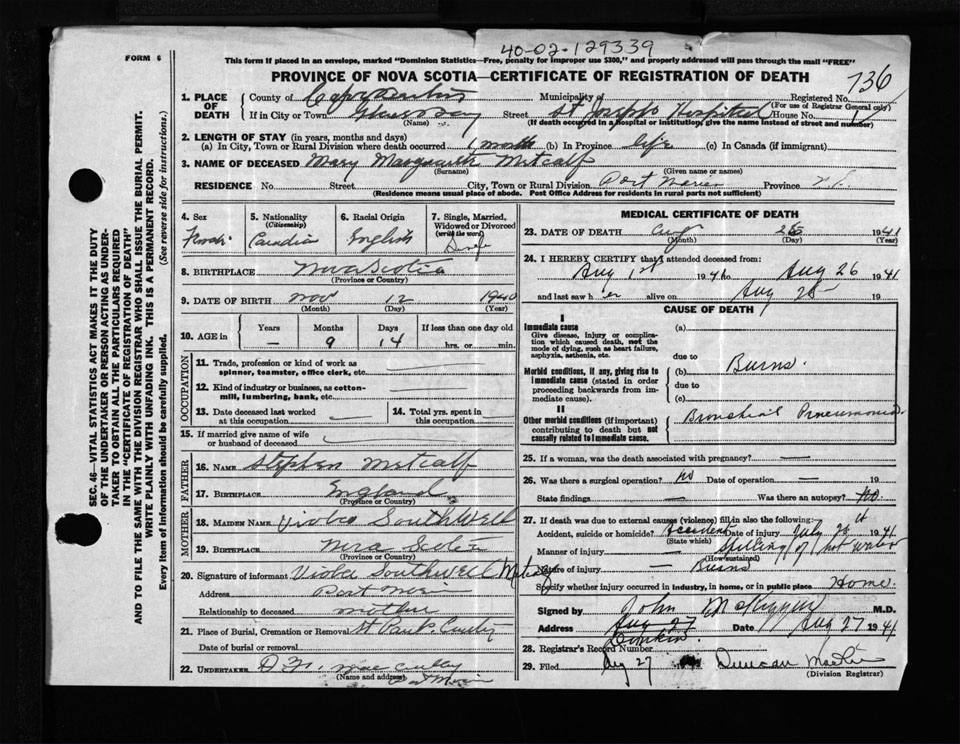 40-02-129339
FORM 6
This form if placed in an envelope, marked "Dominion Statistics—Free, penalty for improper use $300," and properly addressed will pass through the mail "FREE"
PROVINCE OF NOVA SCOTIA—CERTIFICATE OF REGISTRATION OF DEATH
736
1. PLACE OF DEATH
County of Cape Breton Municipality of Registered No.
(For use of Registrar General only)
If in City or Town Glace Bay Street St Joseph's Hospital House No.
(Name) (If death occurred in a hospital or institution, give the name instead of street and number)
2. LENGTH OF STAY (in years, months and days)
(a) In City, Town or Rural Division where death occurred 1 month (b) In Province life (c) In Canada (if immigrant)
3. NAME OF DECEASED Mary Margaret Metcalf
(Surname) (Given name or names)
RESIDENCE No. Street City, Town or Rural Division Port Morien Province N.S.
(Residence means usual place of abode. Post Office Address for Residents in rural parts not sufficient)
4. Sex
Female
5. Nationality (Citizenship)
Canadian
6. Racial Origin
English
7. Single, Married, Widowed or Divorced (write the word)
Single
8. BIRTHPLACE Nova Scotia
(Province or Country)
9. DATE OF BIRTH Nov 12 1940
(Month) (Day) (Year)
10. AGE in Years Months Days If less than one day old
— 9 14 hrs. or min.
OCCUPATION
11. Trade, profession or kind of work as spinner, teamster, office clerk, etc.
12. Kind of industry or business, as cotton-mill, lumbering, bank, etc.
13. Date deceased last worked at this occupation
14. Total yrs. spent in this occupation
15. If married give name of wife or husband of deceased
FATHER
16. NAME Stephen Metcalf
17. BIRTHPLACE England
(Province or Country)
MOTHER
18. MAIDEN NAME Viola Southwell
19. BIRTHPLACE Nova Scotia
(Province or Country)
20. Signature of informant Viola Southwell Metcalf
Address Port Morien
Relationship to deceased mother
21. Place of Burial, Cremation or Removal St Pauls
Date of burial or removal
22. UNDERTAKER
(Name and address) Port Morien
MEDICAL CERTIFICATE OF DEATH
23. DATE OF DEATH Aug 26 1941
(Month) (Day) (Year)
24. I HEREBY CERTIFY that I attended deceased from:
Aug 1st 1941 to Aug 26 1941
and last saw her alive on Aug 25 19
CAUSE OF DEATH
I
Immediate cause
Give disease, injury or complication which caused death, not the mode of dying, such as heart failure, asphyxia, asthenia, etc.
(a)
due to
Morbid conditions, if any, giving rise to immediate cause (stated in order proceeding backwards from immediate cause).
(b) Burns.
due to
(c)
II
Other morbid conditions (if important) contributing to death but not causally related to immediate cause.
Bronchial Pneumonia
25. If a woman, was the death associated with pregnancy? —
26. Was there a surgical operation? No Date of operation — 19
State findings — Was there an autopsy? No.
27. If death was due to external causes (violence) fill in also the following:
Accident, suicide or homicide? Accident Date of injury July 26 1941
(State which)
Manner of injury — Spilling of hot water
(How sustained)
Nature of injury — Burns
Specify whether injury occurred in industry, in home, or in public place Home.
Signed by John M.D.
Address Donkin. Date Aug 27 1941
Aug 27
28. Registrar's Record Number
29. Filed Aug 27 Duncan
(Division Registrar)
SEC. 46—VITAL STATISTICS ACT MAKES IT THE DUTY
OF THE UNDERTAKER OR PERSON ACTING AS UNDER-
TAKER TO OBTAIN ALL THE PARTICULARS REQUIRED
IN THE "CERTIFICATE OF REGISTRATION OF DEATH"
AND TO FILE THE SAME WITH THE DIVISION REGISTRAR WHO SHALL ISSUE THE BURIAL PERMIT.
WRITE PLAINLY WITH UNFADING INK. THIS IS A PERMANENT RECORD.
Every item of information should be carefully supplied. (See reverse side for instructions.)